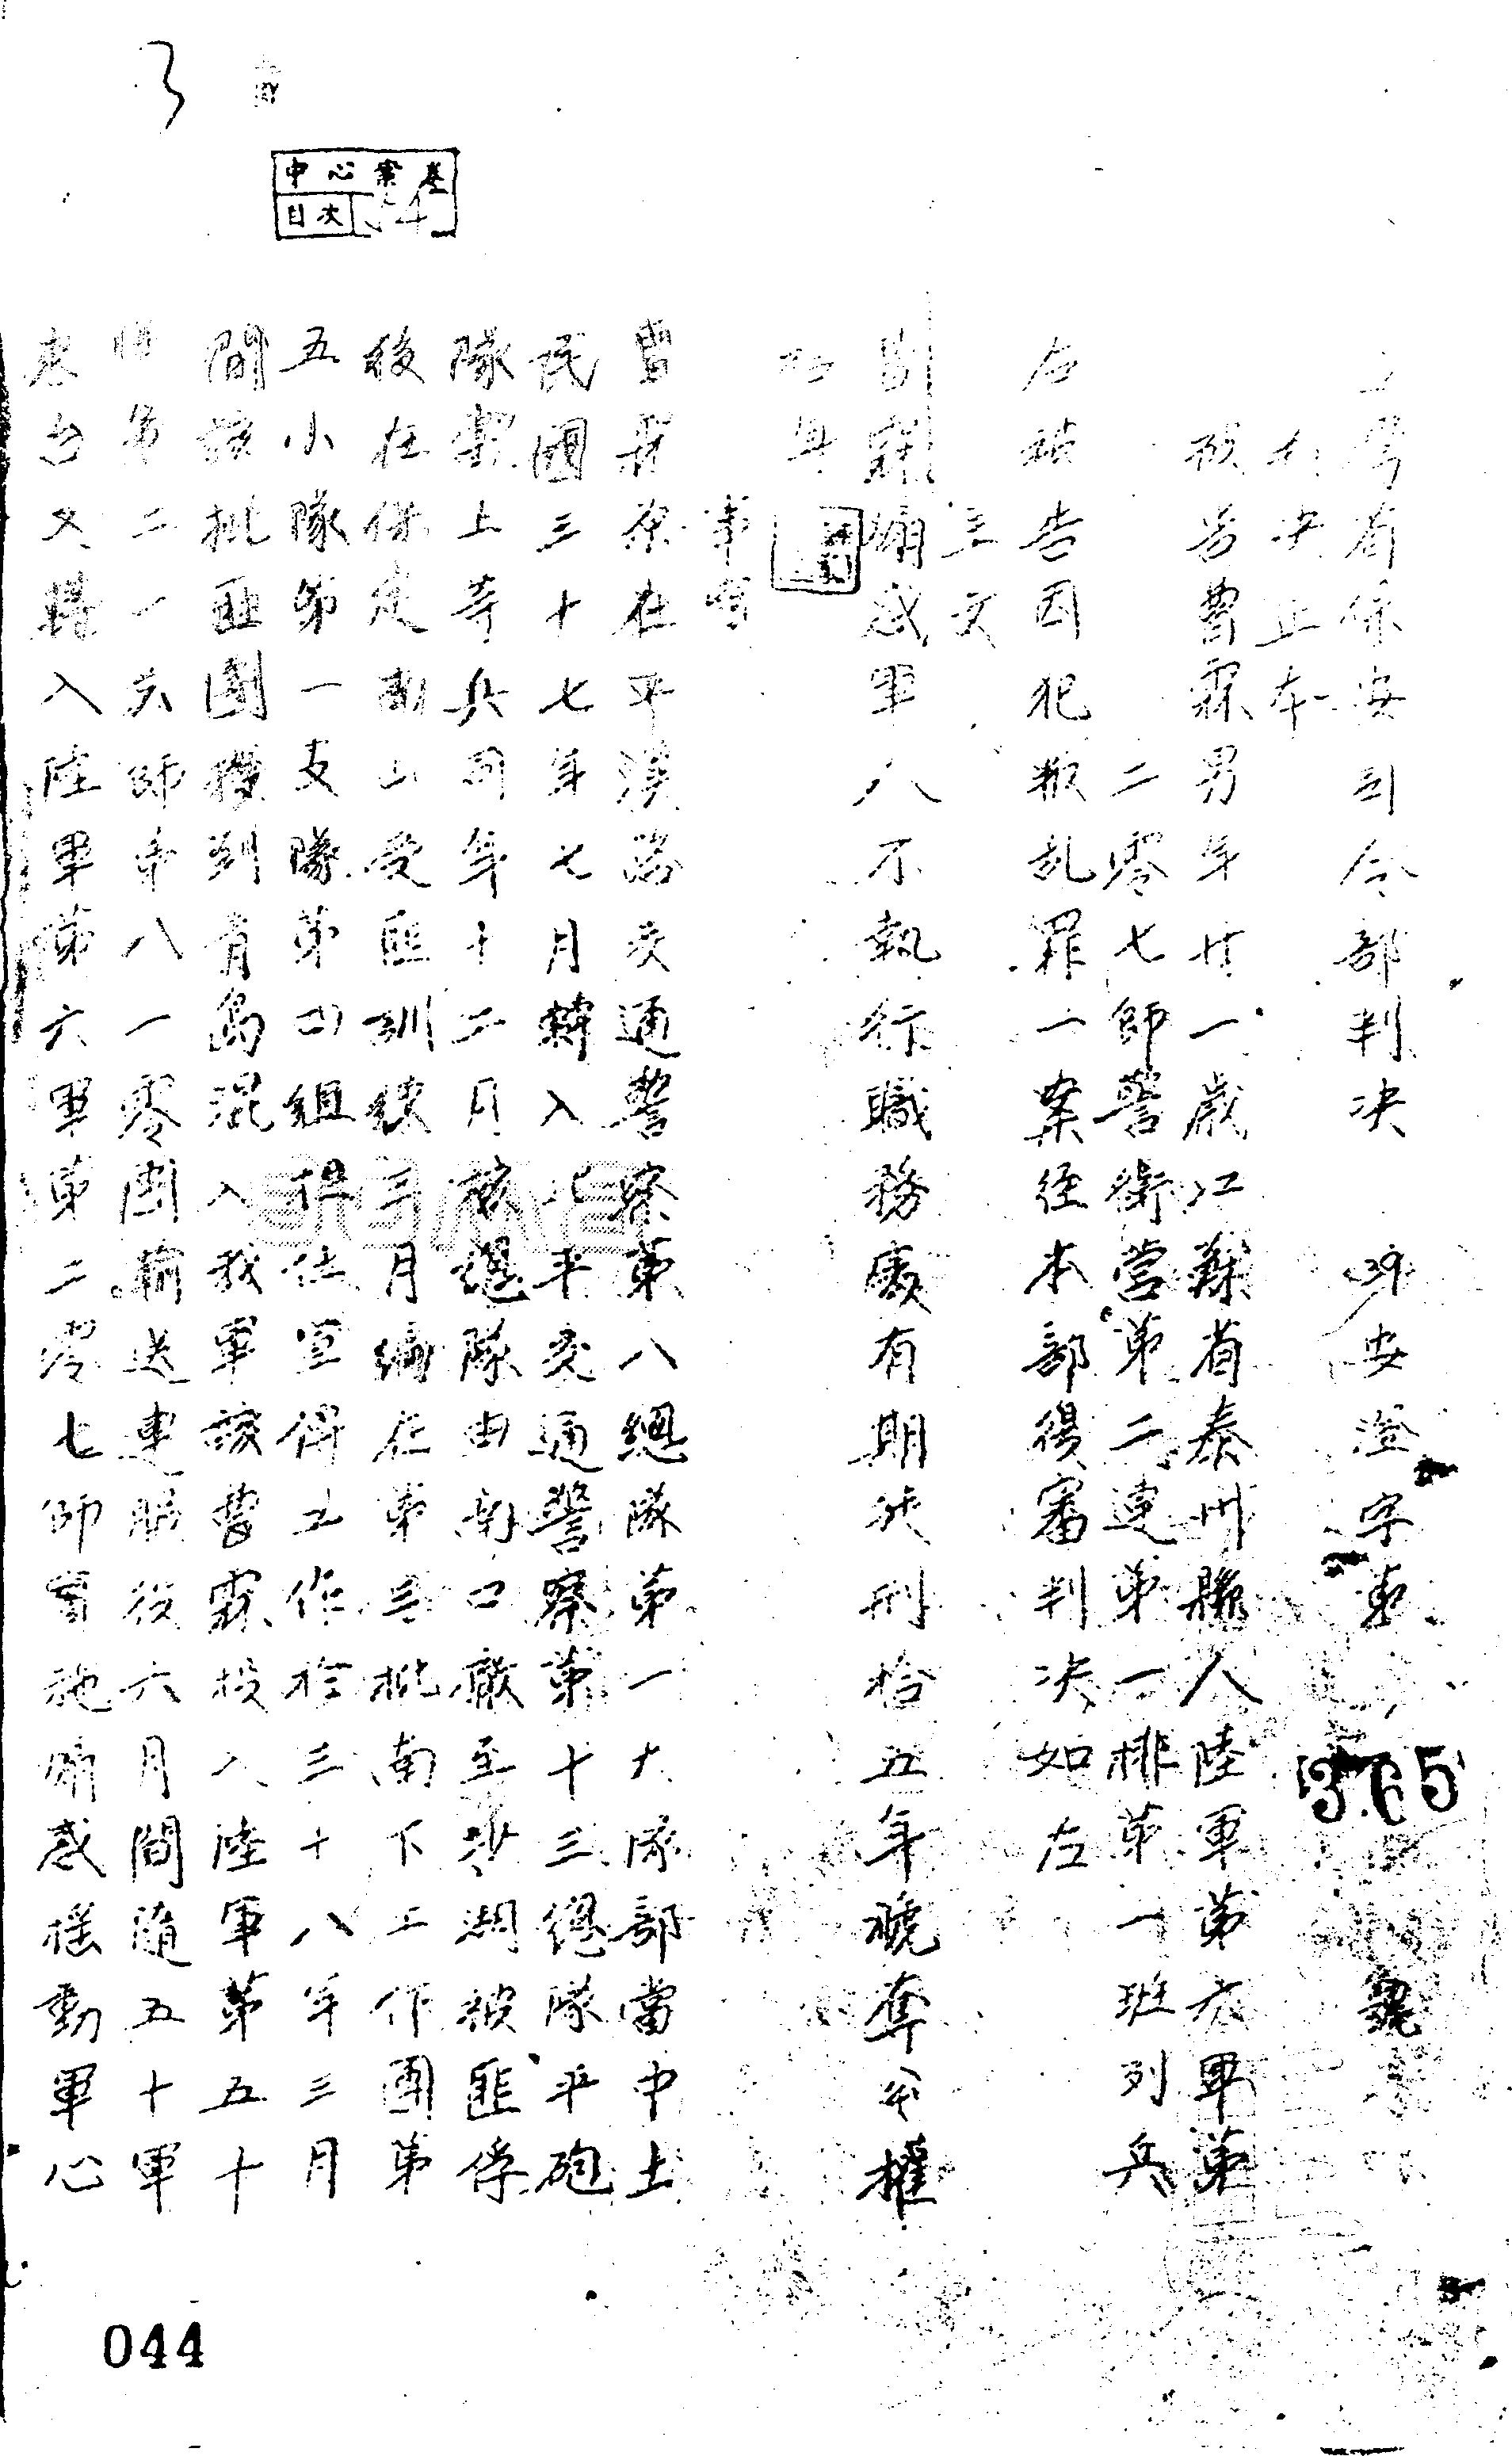 3
中心案卷
目次 54
灣省保安司令部判決 39安澄字東
365
判決正本
被告曹霖男年廿一歲江蘇省泰州縣人陸軍第六軍第
二零七師警衛營第二連第一排第一班列兵
右被告因犯叛乱罪一案經本部復審判決如左
主文
曹霖煽惑軍人不執行職務處有期徒刑拾五年褫奪公權
拾年
事實
曹霖原在平漢路交通警察第八總隊第一大隊部當中士
民國三十七年七月轉入北平交通警察第十三總隊平砲
隊充上等兵同年十二月該總隊由南口撤至沙澗被匪俘
後在保定南山受匪訓練三月編在第三批南下工作團第
五小隊第一支隊第四組擔任宣傳工作於三十八年三月
間該批匪團撥到青島混入我軍該曹霖投入陸軍第五十
軍第二一六師第八一零團輸送連服役六月間隨五十軍
來台又轉入陸軍第六軍第二零七師實施煽惑搖動軍心
044